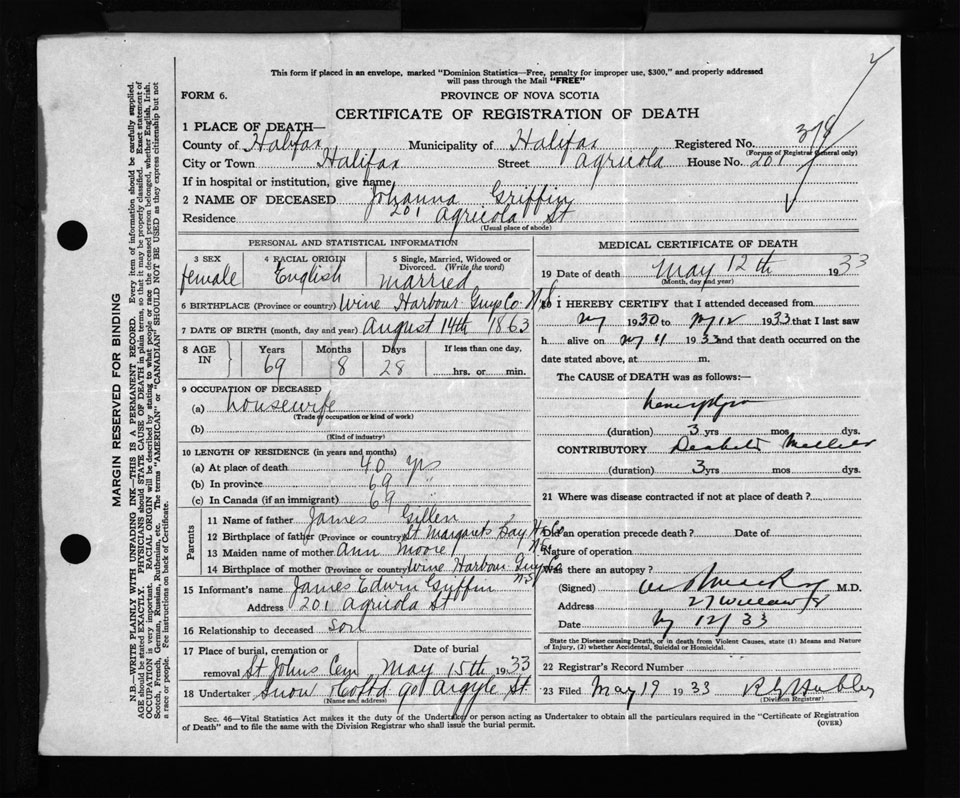 This form if placed in an envelope, marked "Dominion Statistics—Free, penalty for improper use, $300," and properly addressed
will pass through the Mail "FREE"
FORM 6.
PROVINCE OF NOVA SCOTIA
CERTIFICATE OF REGISTRATION OF DEATH
1 PLACE OF DEATH—
County of Halifax Municipality of Halifax Registered No. 378
(For use of Registrar General only)
City or Town Halifax Street Agricola House No. 201
If in hospital or institution, give name
2 NAME OF DECEASED Johanna Griffin
Residence 201 Agricola St
(Usual place of abode)
PERSONAL AND STATISTICAL INFORMATION
3 SEX female
4 RACIAL ORIGIN English
5 Single, Married, Widowed or Divorced. (Write the word) married
6 BIRTHPLACE (Province or country) Wine Harbour Guys Co. N.S
7 DATE OF BIRTH (month, day and year) August 14th 1863
8 AGE IN Years 69 Months 8 Days 28 If less than one day, hrs. or min.
9 OCCUPATION OF DECEASED
(a) housewife
(Trade or occupation or kind of work)
(b)
(Kind of industry)
10 LENGTH OF RESIDENCE (in years and months)
(a) At place of death 40 yrs
(b) In province 69 "
(c) In Canada (if an immigrant) 69 "
Parents
11 Name of father James Gillen
12 Birthplace of father (Province or country) St Margarets Bay Hx Co N.S
13 Maiden name of mother Ann Moore
14 Birthplace of mother (Province or country) Wine Harbour Guys Co N.S
15 Informant's name James Edwin Griffin
Address 201 Agricola St
16 Relationship to deceased son
17 Place of burial, cremation or removal St Johns Cem Date of burial May 15th 1933
18 Undertaker Snow & Co Ltd 90 Argyle St.
(Name and address)
MEDICAL CERTIFICATE OF DEATH
19 Date of death May 12th 1933
(Month, day and year)
20 I HEREBY CERTIFY that I attended deceased from
1930 to 12 1933 that I last saw
h alive on 11 1933 and that death occurred on the
date stated above, at m.
The CAUSE of DEATH was as follows:—
(duration) 3 yrs mos dys.
CONTRIBUTORY
(duration) 3 yrs mos dys.
21 Where was disease contracted if not at place of death?
Did an operation precede death? Date of
Nature of operation
Was there an autopsy?
(Signed) M.D.
Address 27
Date 12/33
State the Disease causing Death, or in death from Violent Causes, state (1) Means and Nature
of Injury, (2) whether Accidental, Suicidal or Homicidal.
22 Registrar's Record Number
23 Filed May 19 1933
(Division Registrar)
Sec. 46—Vital Statistics Act makes it the duty of the Undertaker or person acting as Undertaker to obtain all the particulars required in the "Certificate of Registration
of Death" and to file the same with the Division Registrar who shall issue the burial permit.
(OVER)
MARGIN RESERVED FOR BINDING
N.B.—WRITE PLAINLY WITH UNFADING INK—THIS IS A PERMANENT RECORD. Every item of information should be carefully supplied.
AGE should be stated EXACTLY. PHYSICIANS should STATE CAUSE OF DEATH in plain terms, so that it may be properly classified. Exact statement of
OCCUPATION is very important. RACIAL ORIGIN will be described by stating to what people or race the deceased person belonged, whether English, Irish,
Scotch, French, German, Russian, Ruthenian, etc. The terms "AMERICAN" or "CANADIAN" SHOULD NOT BE USED as they express citizenship but not
a race or people. Fee instructions on back of Certificate.